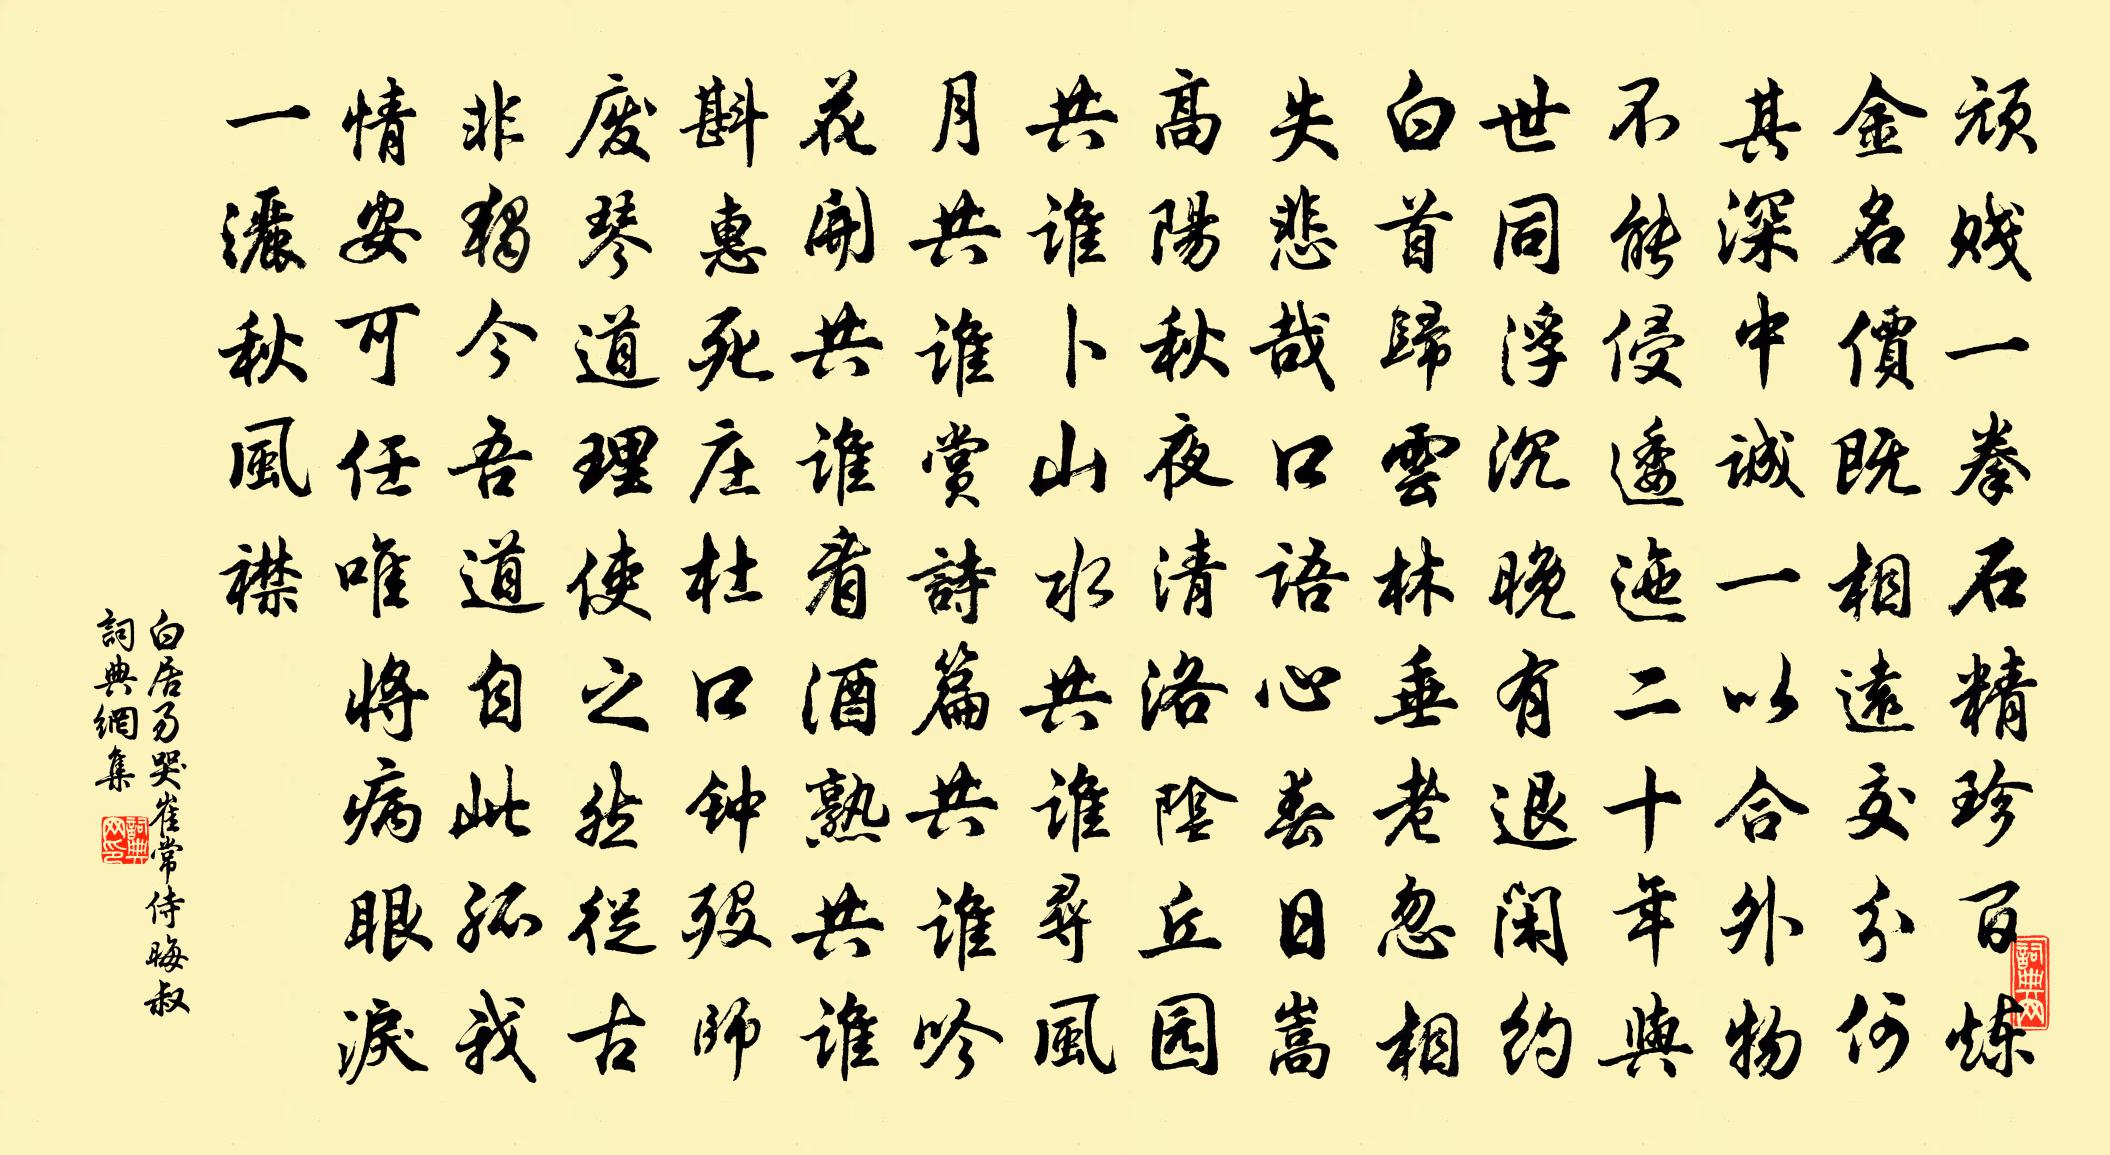 頑賤一拳石精珍百煉
金名價既相遠交分何
其深中誠一以合外物
不能侵逶迤二十年與
世同浮沉晚有退閑約
白首歸雲林垂老忽相
失悲哉口語心春日嵩
高陽秋夜清洛陰丘园
共誰卜山水共誰尋風
月共誰賞詩篇共誰吟
花開共誰看酒熟共誰
斟惠死庄杜口钟殁師
廢琴道理使之然從古
非獨今吾道自此孤我
情安可任唯將病眼淚
一灑秋風襟
白居易哭崔常侍晦叔
詞典網集
詞典网印
詞典网